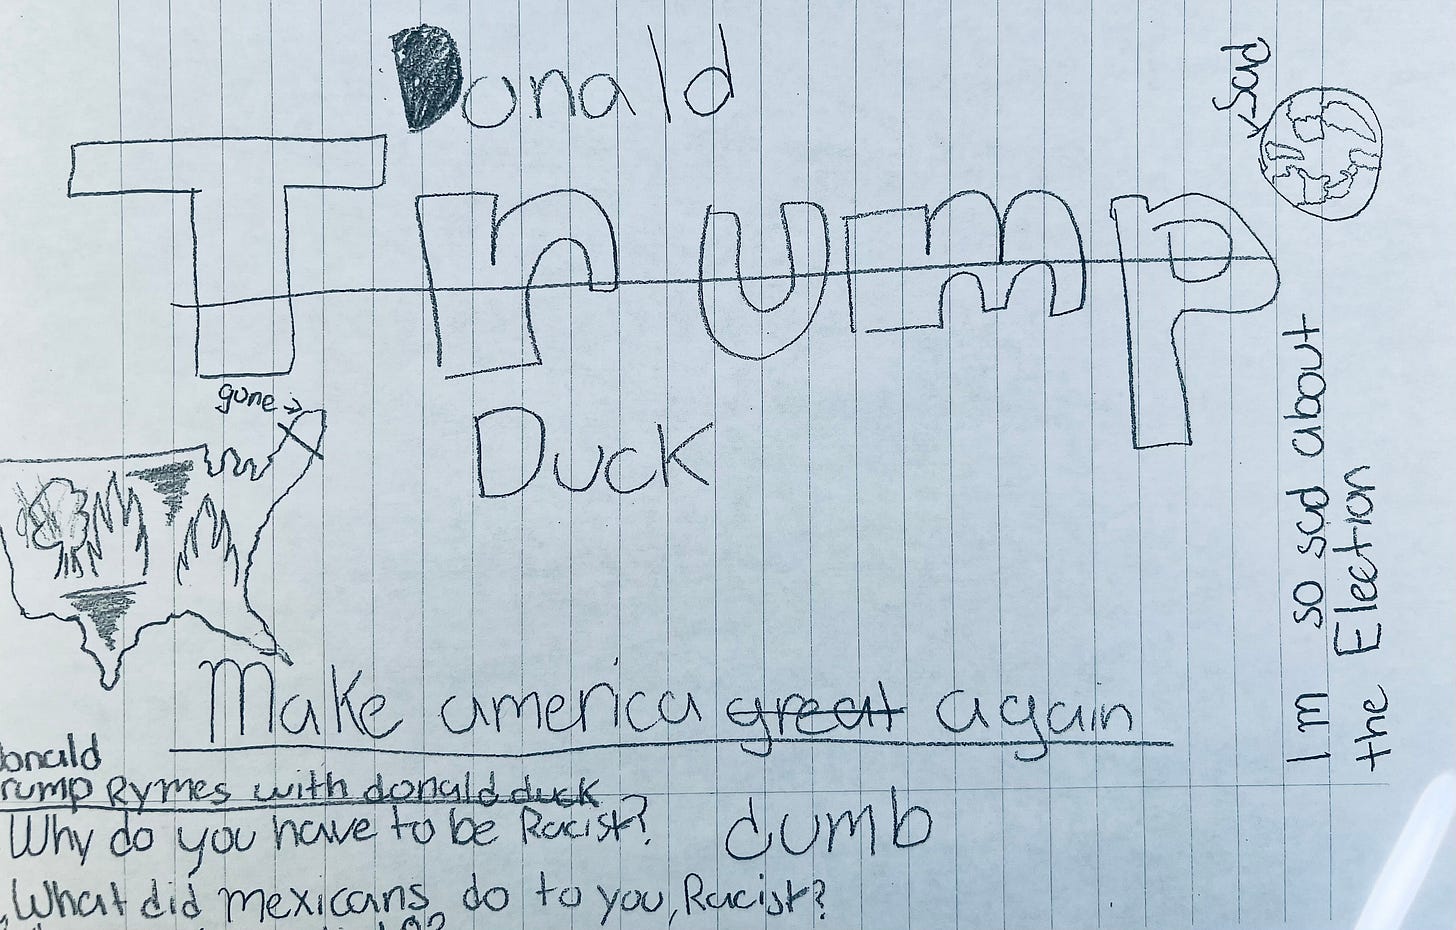 Donald
Trump
Duck
gone
Make america great again
dumb
onald
rump Rymes with donald duck
Why do you have to be Racist?
What did mexicans do to you, Racist?
sad
I m so sad about
the Election